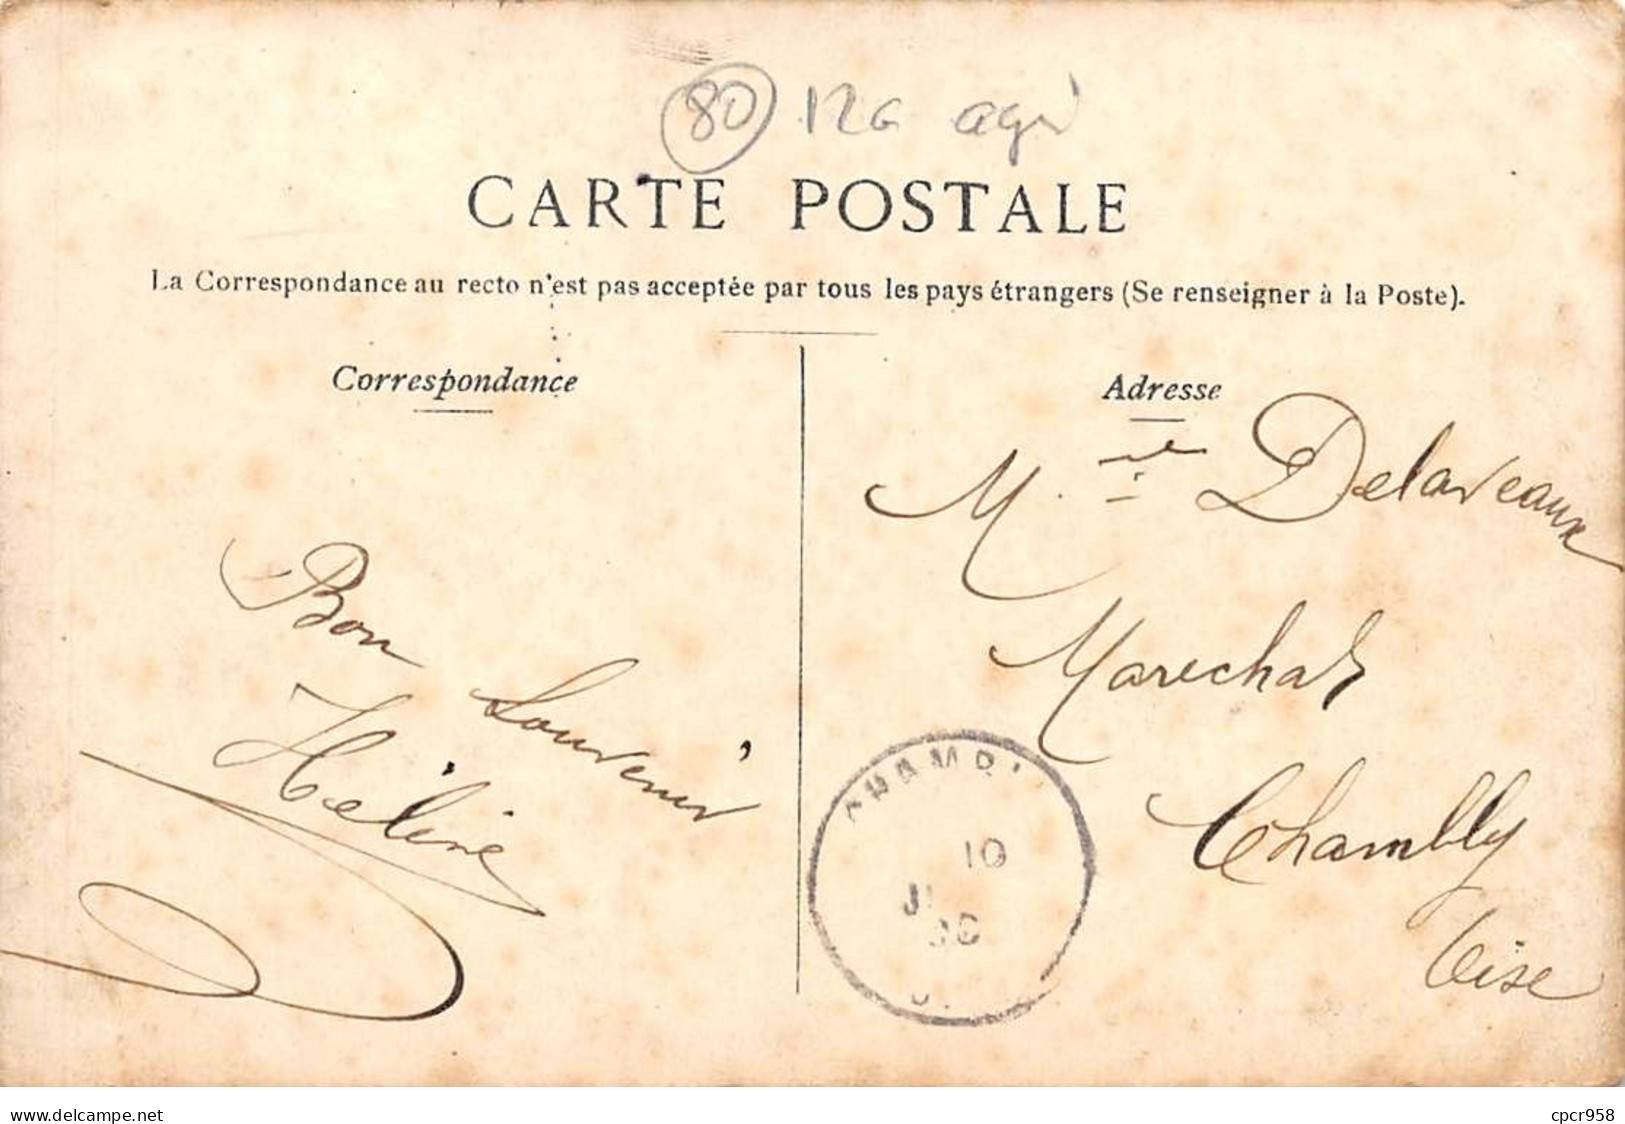 80 12a agri
CARTE POSTALE
La Correspondance au recto n'est pas acceptée par tous les pays étrangers (Se renseigner à la Poste).
Correspondance
Bon Souvenir
Hélène
Adresse
M. Delaveaux
Marechal
Chambly
Oise
10
www.delcampe.net
cpcr958